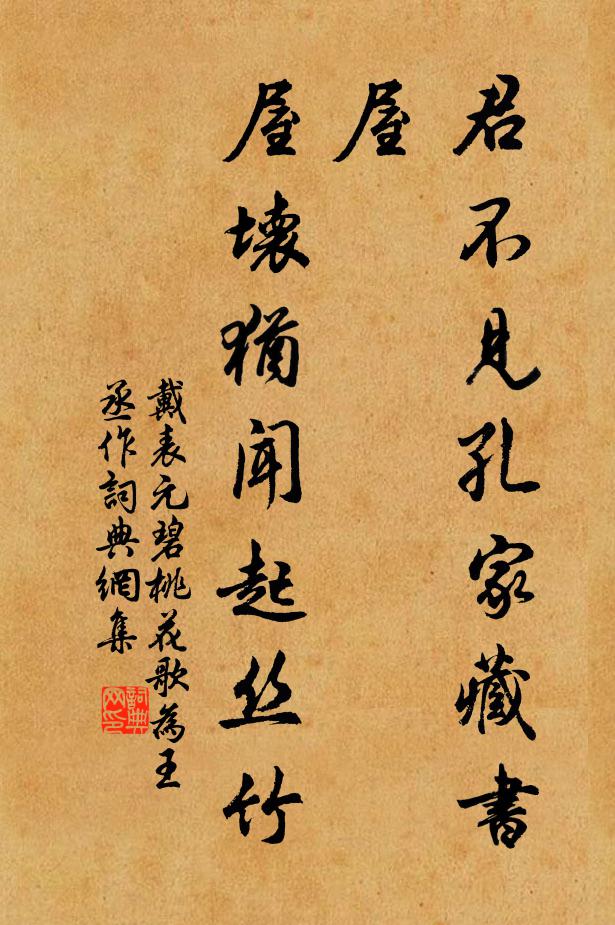 君不见孔家藏書
屋
屋壞猶闻起丝竹
戴表元碧桃花歌為王
丞作詞典網集
詞典
网印